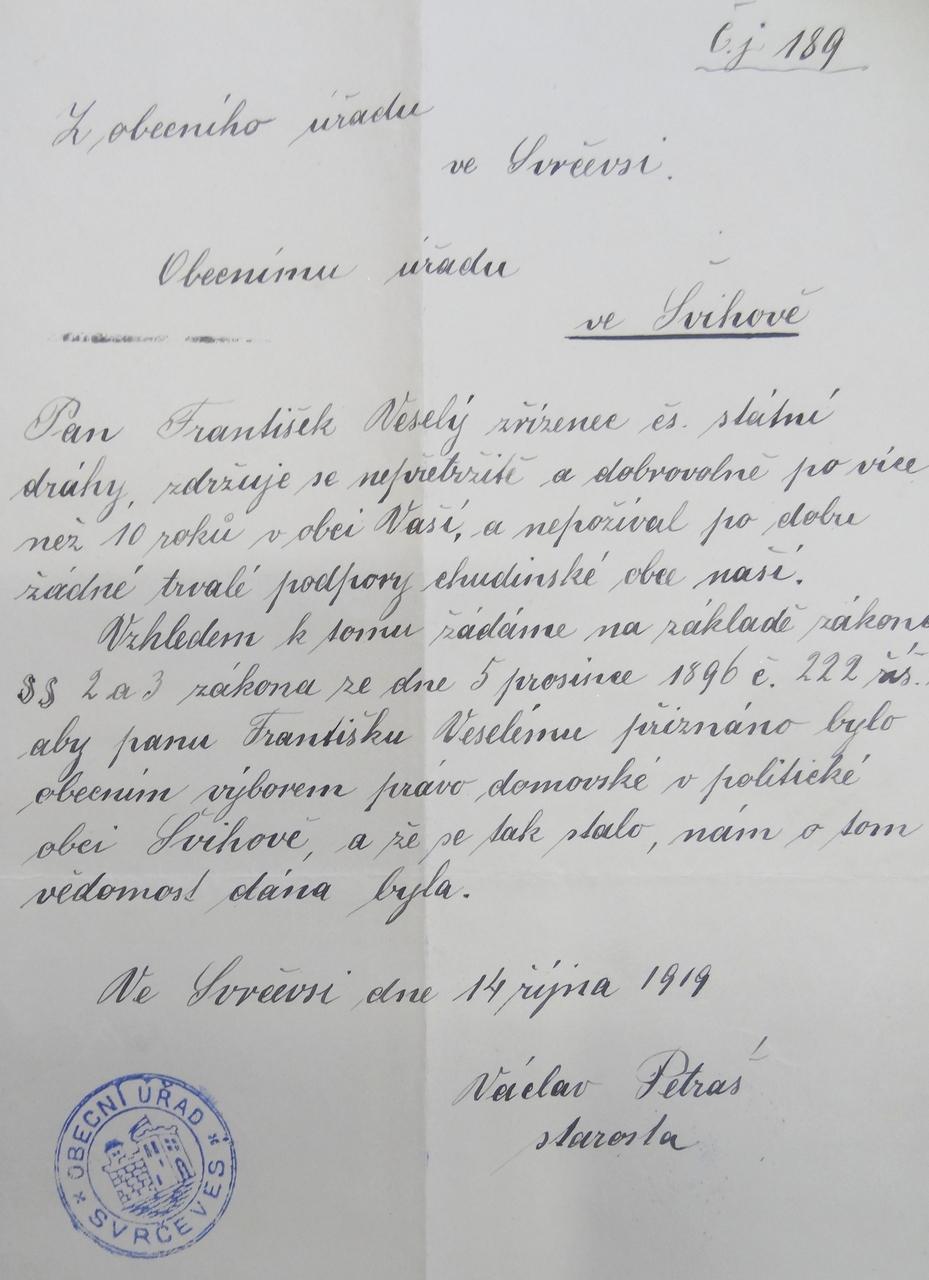 Č.j 189
Z obecního úřadu
ve Svrčevsi.
Obecnímu úřadu
ve Švihově
Pan František Veselý zřízenec čs. státní
dráhy, zdržuje se nepřetržitě a dobrovolně po více
než 10 roků v obci Vaší, a nepožíval po dobu
žádné trvalé podpory chudinské obce naší.
Vzhledem k tomu žádáme na základě zákona
§§ 2 a 3 zákona ze dne 5 prosince 1896 č. 222 řš.
aby panu Františku Veselému přiznáno bylo
obecním výborem právo domovské v politické
obci Švihově, a že se tak stalo, nám o tom
vědomost dána byla.
Ve Svrčevsi dne 14 října 1919
Václav Petraš
starosta
OBECNÍ ÚŘAD
SVRČEVES